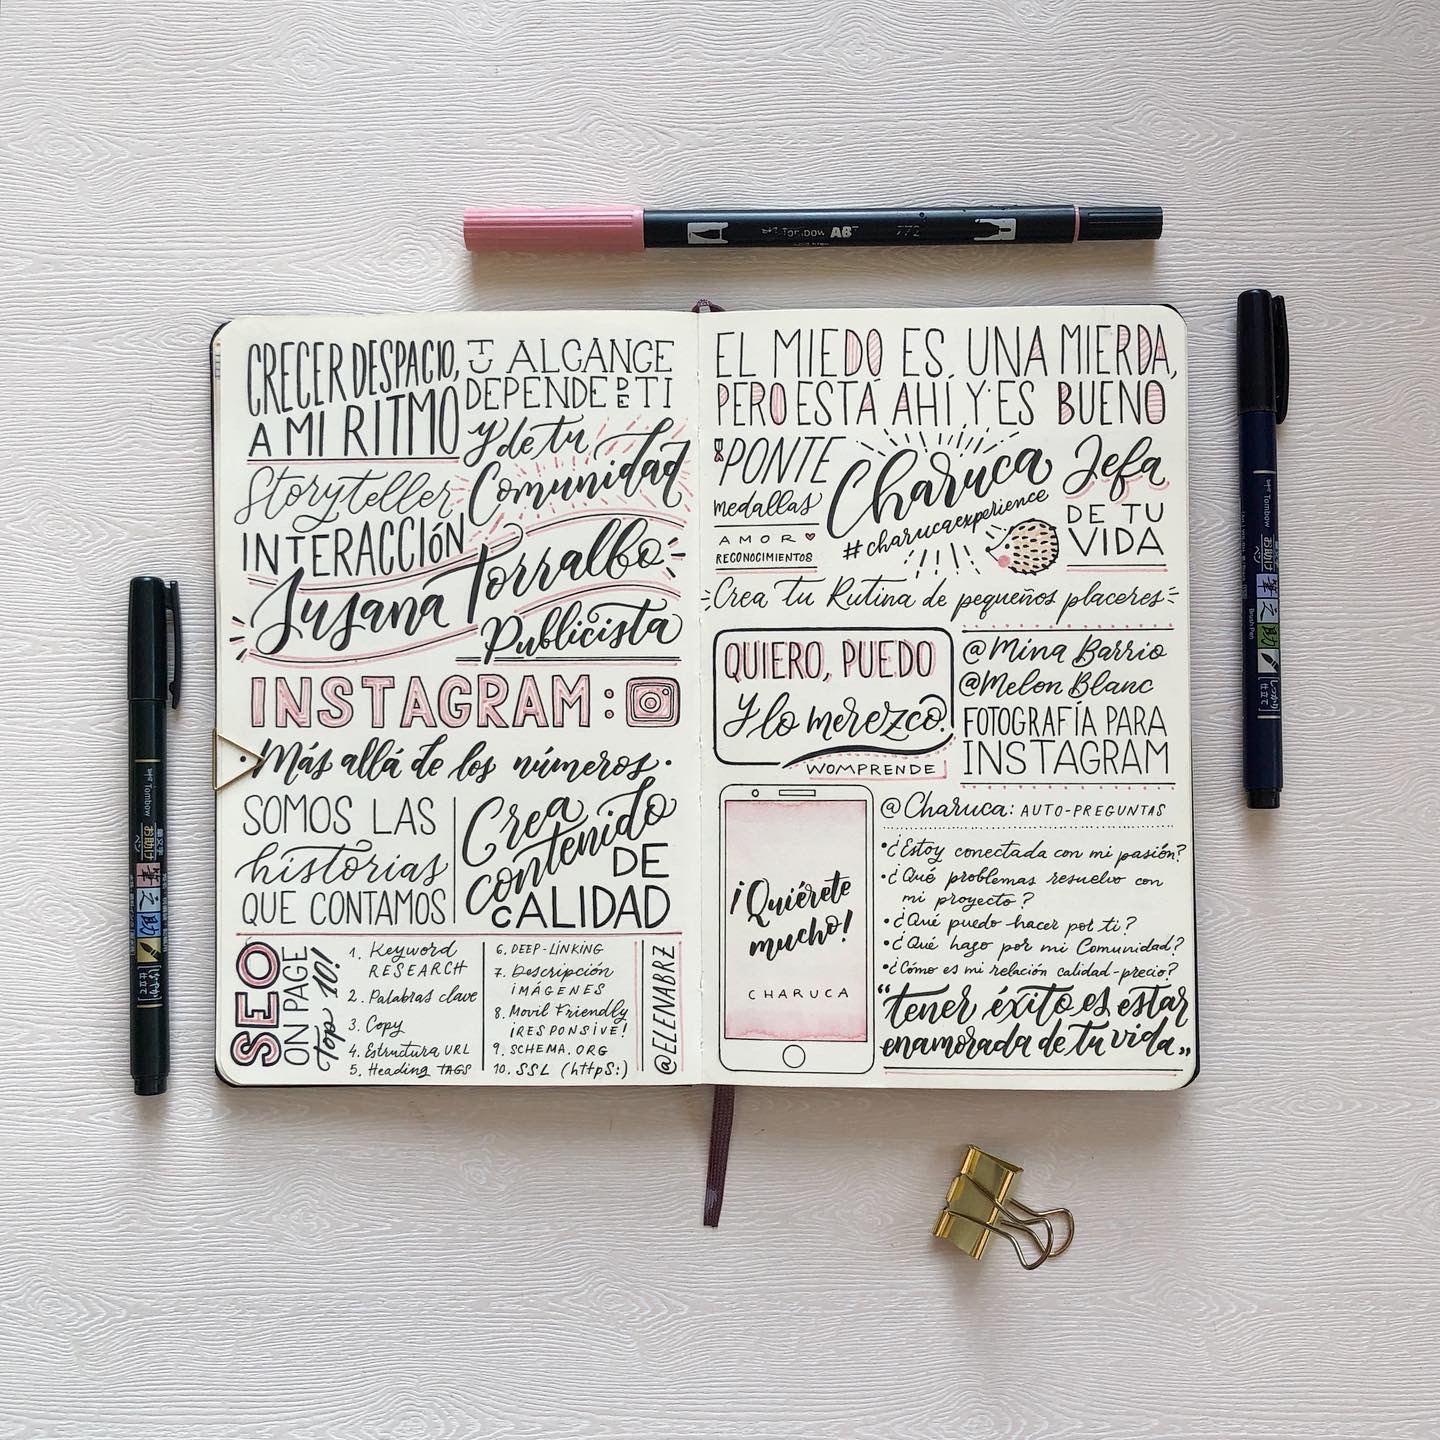 Tombow ABT 772
CRECER DESPACIO,
A MI RITMO
TU ALCANCE
DEPENDE DE TI
y de tu
Comunidad
Storyteller
INTERACCIÓN
Susana Torralbo
Publicista
INSTAGRAM:
Más allá de los números.
SOMOS LAS
historias
QUE CONTAMOS
Crea
contenido
DE
CALIDAD
SEO
ON PAGE
Top 10!
1. Keyword
RESEARCH
2. Palabras clave
3. Copy
4. Estructura URL
5. Heading TAGS
6. DEEP-LINKING
7. Descripción
IMÁGENES
8. Movil Friendly
¡RESPONSIVE!
9. SCHEMA.ORG
10. SSL (httpS:)
@ELENABRZ
EL MIEDO ES UNA MIERDA,
PERO ESTÁ AHÍ Y ES BUENO
PONTE
medallas
AMOR
RECONOCIMIENTOS
Charuca
#charucaexperience
Jefa
DE TU
VIDA
Crea tu Rutina de pequeños placeres
QUIERO, PUEDO
Y lo merezco.
WOMPRENDE
@Mina Barrio
@Melon Blanc
FOTOGRAFÍA PARA
INSTAGRAM
¡Quiérete
mucho!
CHARUCA
@Charuca: AUTO-PREGUNTAS
•¿Estoy conectada con mi pasión?
•¿Qué problemas resuelvo con
mi proyecto?
•¿Qué puedo hacer por ti?
•¿Qué hago por mi Comunidad?
•¿Cómo es mi relación calidad-precio?
"tener éxito es estar
enamorada de tu vida"
Tombow
お助け
筆之助
しっかり
仕立て
Tombow
お助け
筆之助
Brush Pen
しっかり
仕立て